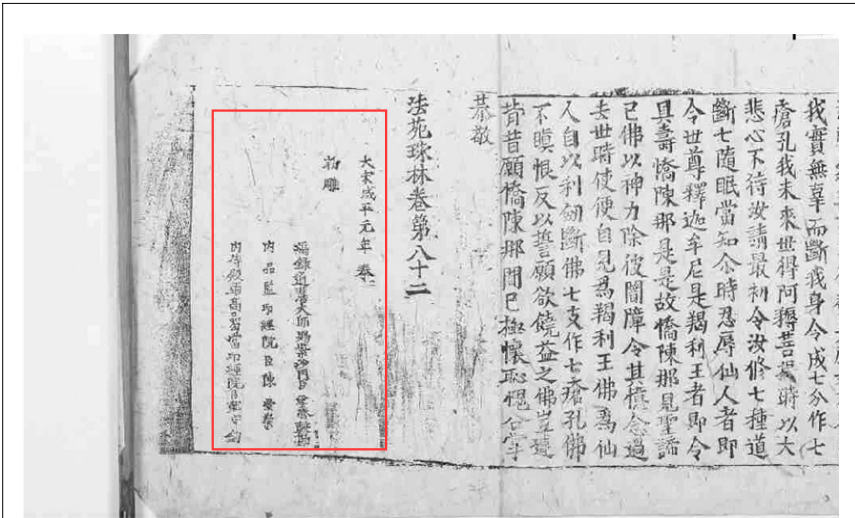 我實無辜而斷我身令成七分作七
瘡孔我未來世得阿耨菩提時以大
悲心不待汝請最初令汝修七種道
斷七隨眠當知尒時忍辱仙人者即
今世尊釋迦牟尼是羯利王者即今
具壽憍陳那是是故憍陳那見聖諦
已佛以神力除彼闇障令其憶念過
去世時使便自見為羯利王佛為仙
人自以利劒斷佛七支作七瘡孔佛
不瞋恨反以誓願欲饒益之佛豈違
昔願憍陳那聞已極懷恥愧合掌
恭敬
法苑珠林卷第八十二
大宋咸平元年 奉
勑雕
內品監印經院臣陳